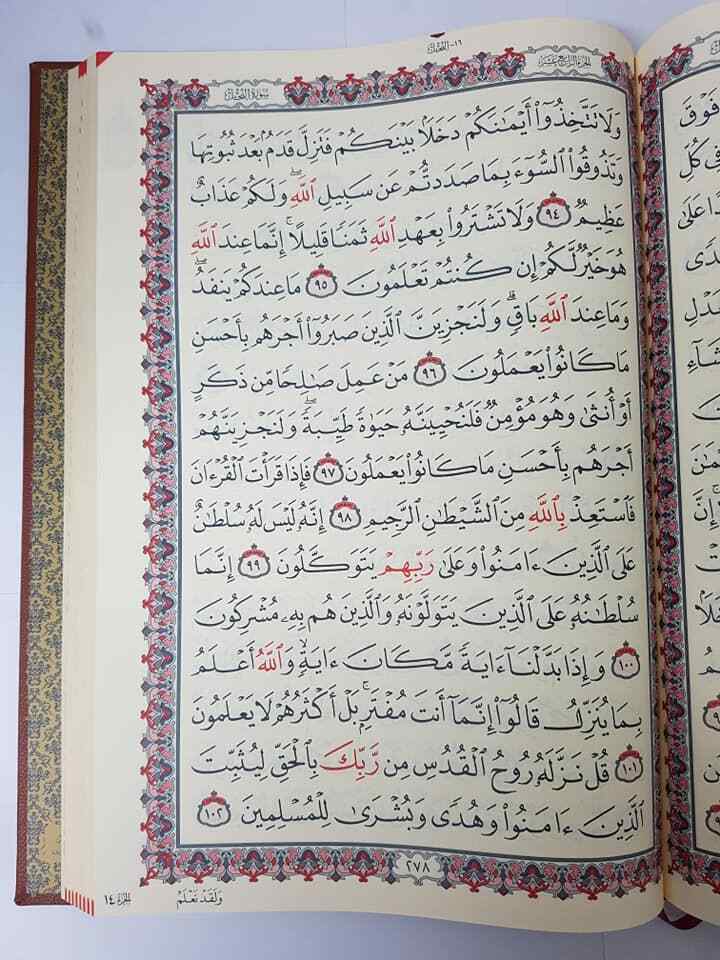 ١٦- النحل
الجزء الرابع عشر
سورة النحل
وَلَا تَتَّخِذُوٓا۟ أَيْمَٰنَكُمْ دَخَلًۢا بَيْنَكُمْ فَتَزِلَّ قَدَمٌۢ بَعْدَ ثُبُوتِهَا
وَتَذُوقُوا۟ ٱلسُّوٓءَ بِمَا صَدَدتُّمْ عَن سَبِيلِ ٱللَّهِ ۖ وَلَكُمْ عَذَابٌ
عَظِيمٌ ٩٤ وَلَا تَشْتَرُوا۟ بِعَهْدِ ٱللَّهِ ثَمَنًا قَلِيلًا ۚ إِنَّمَا عِندَ ٱللَّهِ
هُوَ خَيْرٌ لَّكُمْ إِن كُنتُمْ تَعْلَمُونَ ٩٥ مَا عِندَكُمْ يَنفَدُ ۖ
وَمَا عِندَ ٱللَّهِ بَاقٍ ۗ وَلَنَجْزِيَنَّ ٱلَّذِينَ صَبَرُوٓا۟ أَجْرَهُم بِأَحْسَنِ
مَا كَانُوا۟ يَعْمَلُونَ ٩٦ مَنْ عَمِلَ صَٰلِحًا مِّن ذَكَرٍ
أَوْ أُنثَىٰ وَهُوَ مُؤْمِنٌ فَلَنُحْيِيَنَّهُۥ حَيَوٰةً طَيِّبَةً ۖ وَلَنَجْزِيَنَّهُمْ
أَجْرَهُم بِأَحْسَنِ مَا كَانُوا۟ يَعْمَلُونَ ٩٧ فَإِذَا قَرَأْتَ ٱلْقُرْءَانَ
فَٱسْتَعِذْ بِٱللَّهِ مِنَ ٱلشَّيْطَٰنِ ٱلرَّجِيمِ ٩٨ إِنَّهُۥ لَيْسَ لَهُۥ سُلْطَٰنٌ
عَلَى ٱلَّذِينَ ءَامَنُوا۟ وَعَلَىٰ رَبِّهِمْ يَتَوَكَّلُونَ ٩٩ إِنَّمَا
سُلْطَٰنُهُۥ عَلَى ٱلَّذِينَ يَتَوَلَّوْنَهُۥ وَٱلَّذِينَ هُم بِهِۦ مُشْرِكُونَ
١٠٠ وَإِذَا بَدَّلْنَآ ءَايَةً مَّكَانَ ءَايَةٍ ۙ وَٱللَّهُ أَعْلَمُ
بِمَا يُنَزِّلُ قَالُوٓا۟ إِنَّمَآ أَنتَ مُفْتَرٍۭ ۚ بَلْ أَكْثَرُهُمْ لَا يَعْلَمُونَ
١٠١ قُلْ نَزَّلَهُۥ رُوحُ ٱلْقُدُسِ مِن رَّبِّكَ بِٱلْحَقِّ لِيُثَبِّتَ
ٱلَّذِينَ ءَامَنُوا۟ وَهُدًى وَبُشْرَىٰ لِلْمُسْلِمِينَ ١٠٢
٢٧٨
وَلَقَدْ نَعْلَمُ
الجزء ١٤